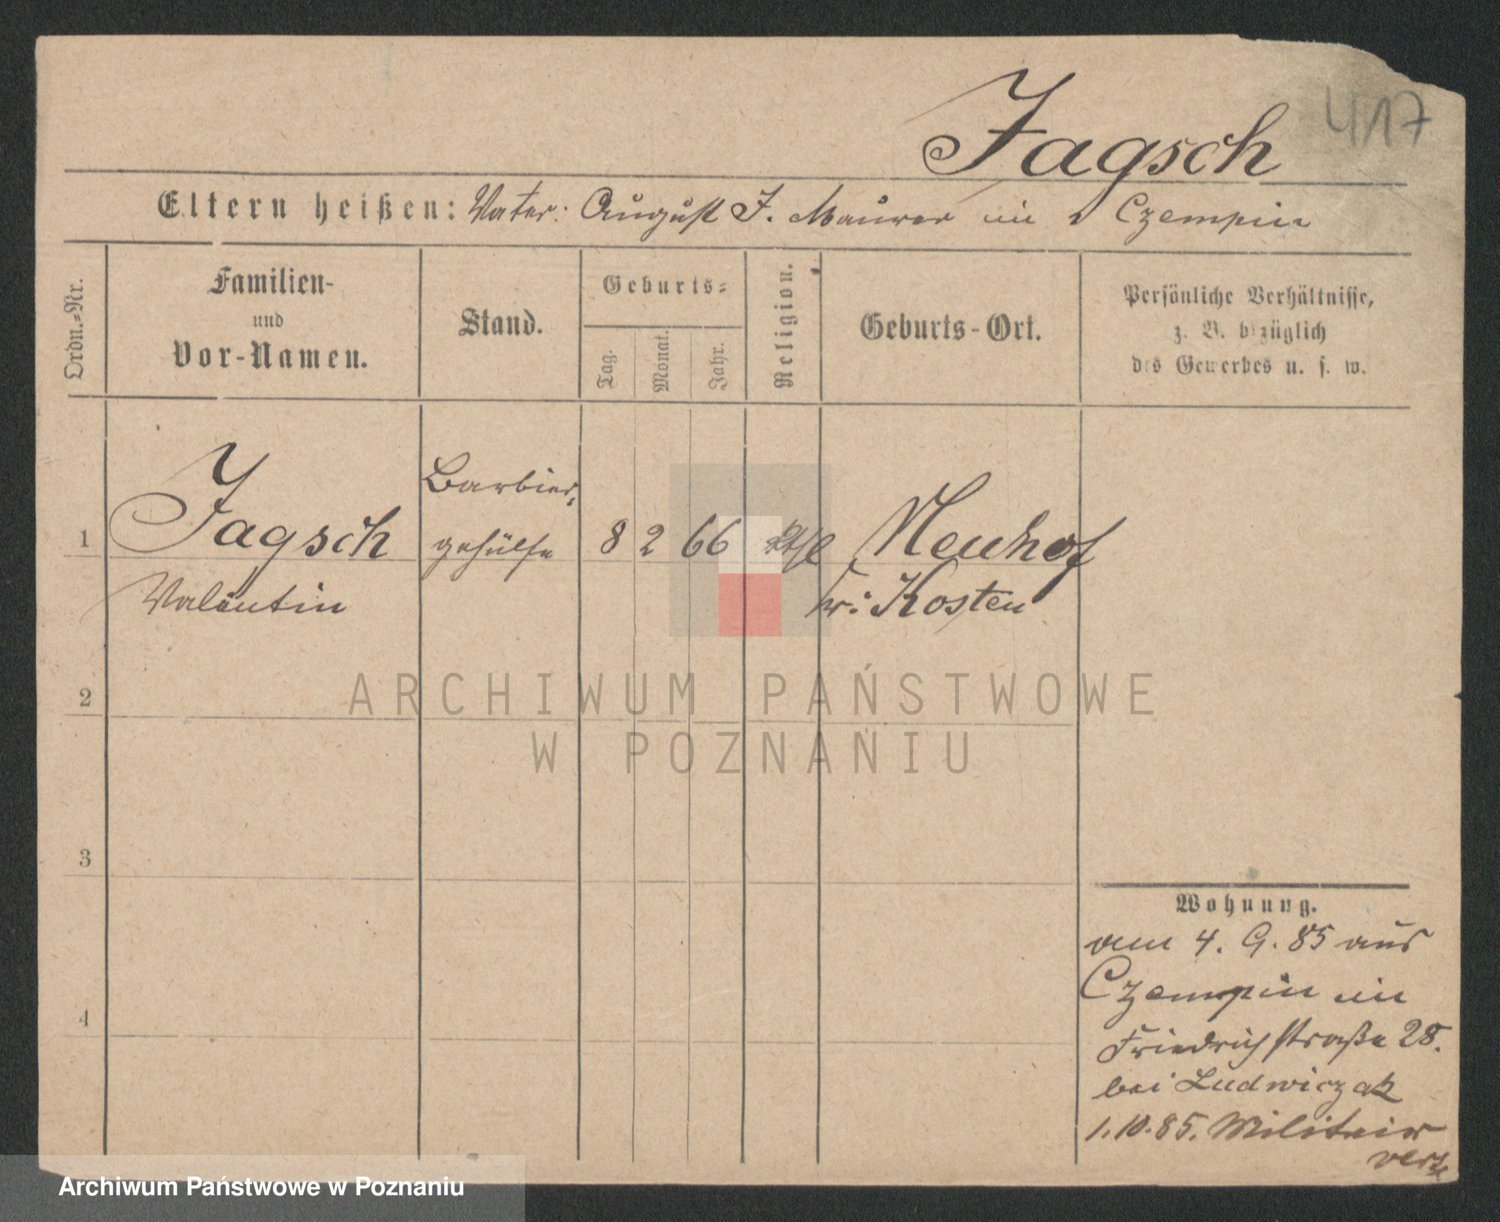 Jagsch
4117
Eltern heißen: Vater: August J. Maurer in Czempin
Ordn.-Nr.
Familien-
und
Vor-Namen.
Stand.
Geburts-
Tag.
Monat.
Jahr.
Religion.
Geburts-Ort.
Persönliche Verhältnisse,
z. B. bezüglich
des Gewerbes u. s. w.
1
Jagsch
Valentin
Barbier-
gehülfe
8 2 66 kthl
Neuhof
Kr: Kosten
2
3
4
ARCHIWUM PAŃSTWOWE
W POZNANIU
Wohnung.
am 4. 9. 85 aus
Czempin in
Friedrichstraße 28.
bei Ludwiczak
1.10.85. Militair
verz
Archiwum Państwowe w Poznaniu